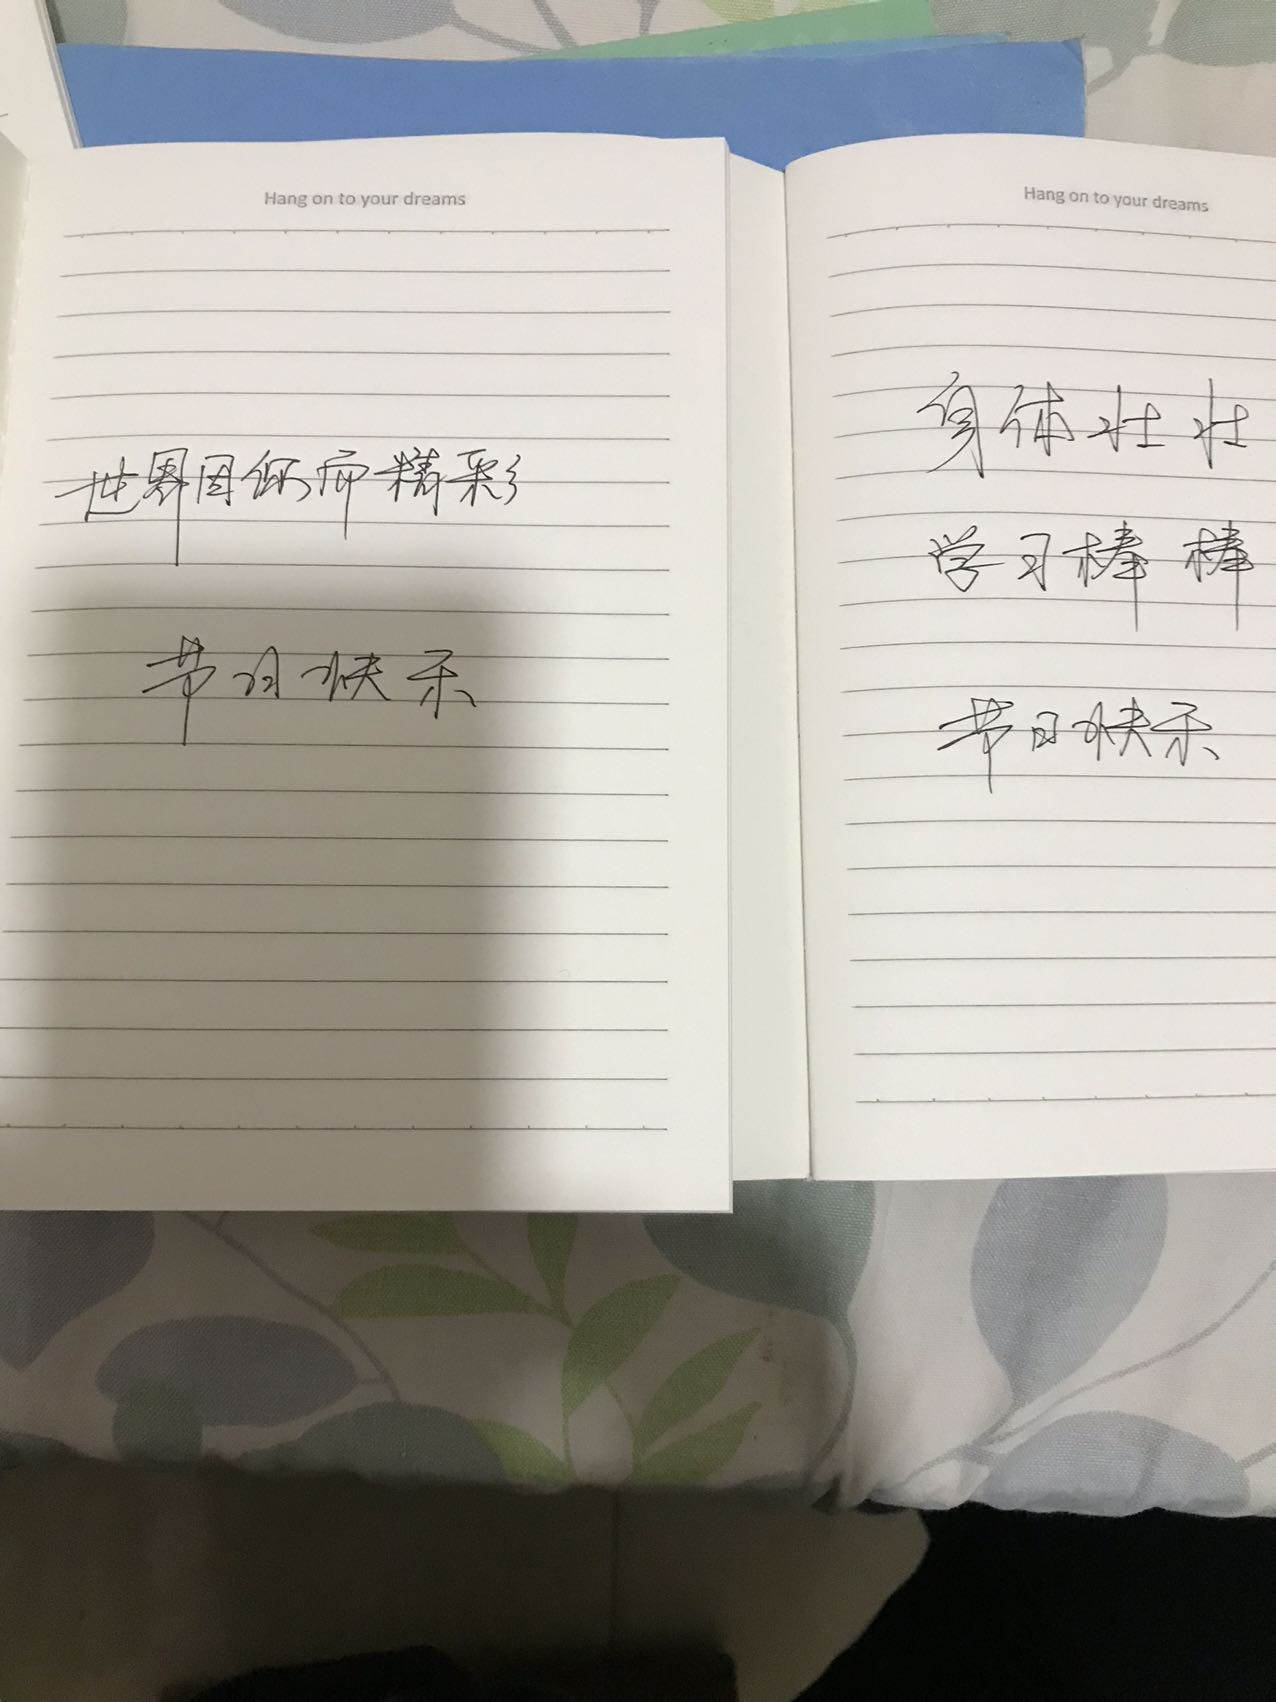 Hang on to your dreams
世界因你而精彩
节日快乐
Hang on to your dreams
身体壮壮
学习棒棒
节日快乐